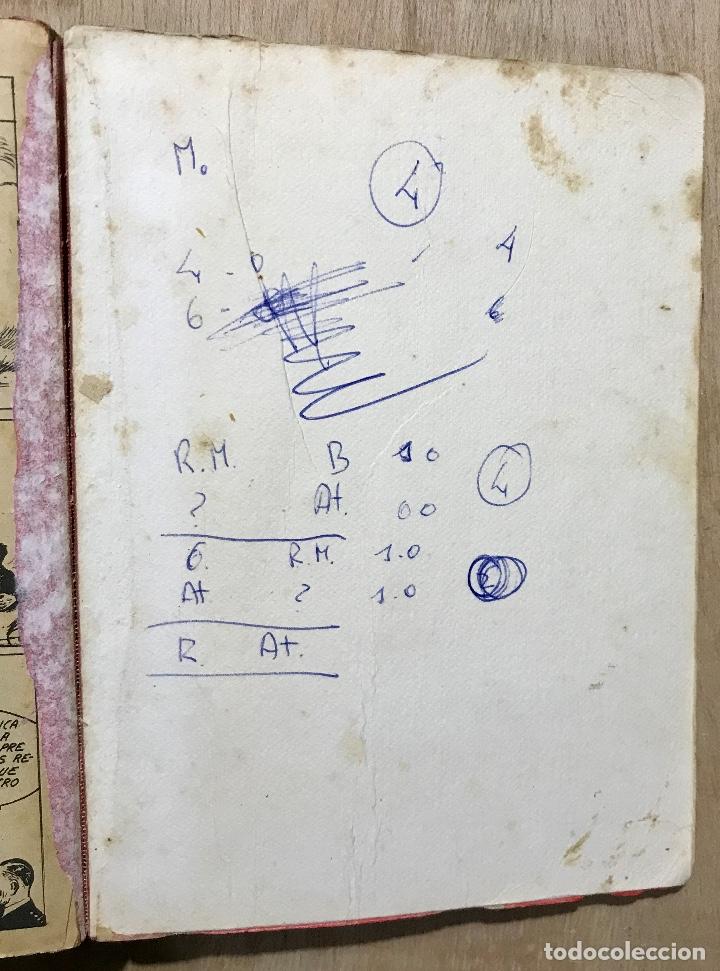 M. 4
4 - 0 4
6 - 6
R.M. B 1 0 4
? At. 0 0
6. R.M. 1.0
At. ? 1.0
R. At.
ICA
A
PRE
S RE-
QUE
TRO
todocoleccion